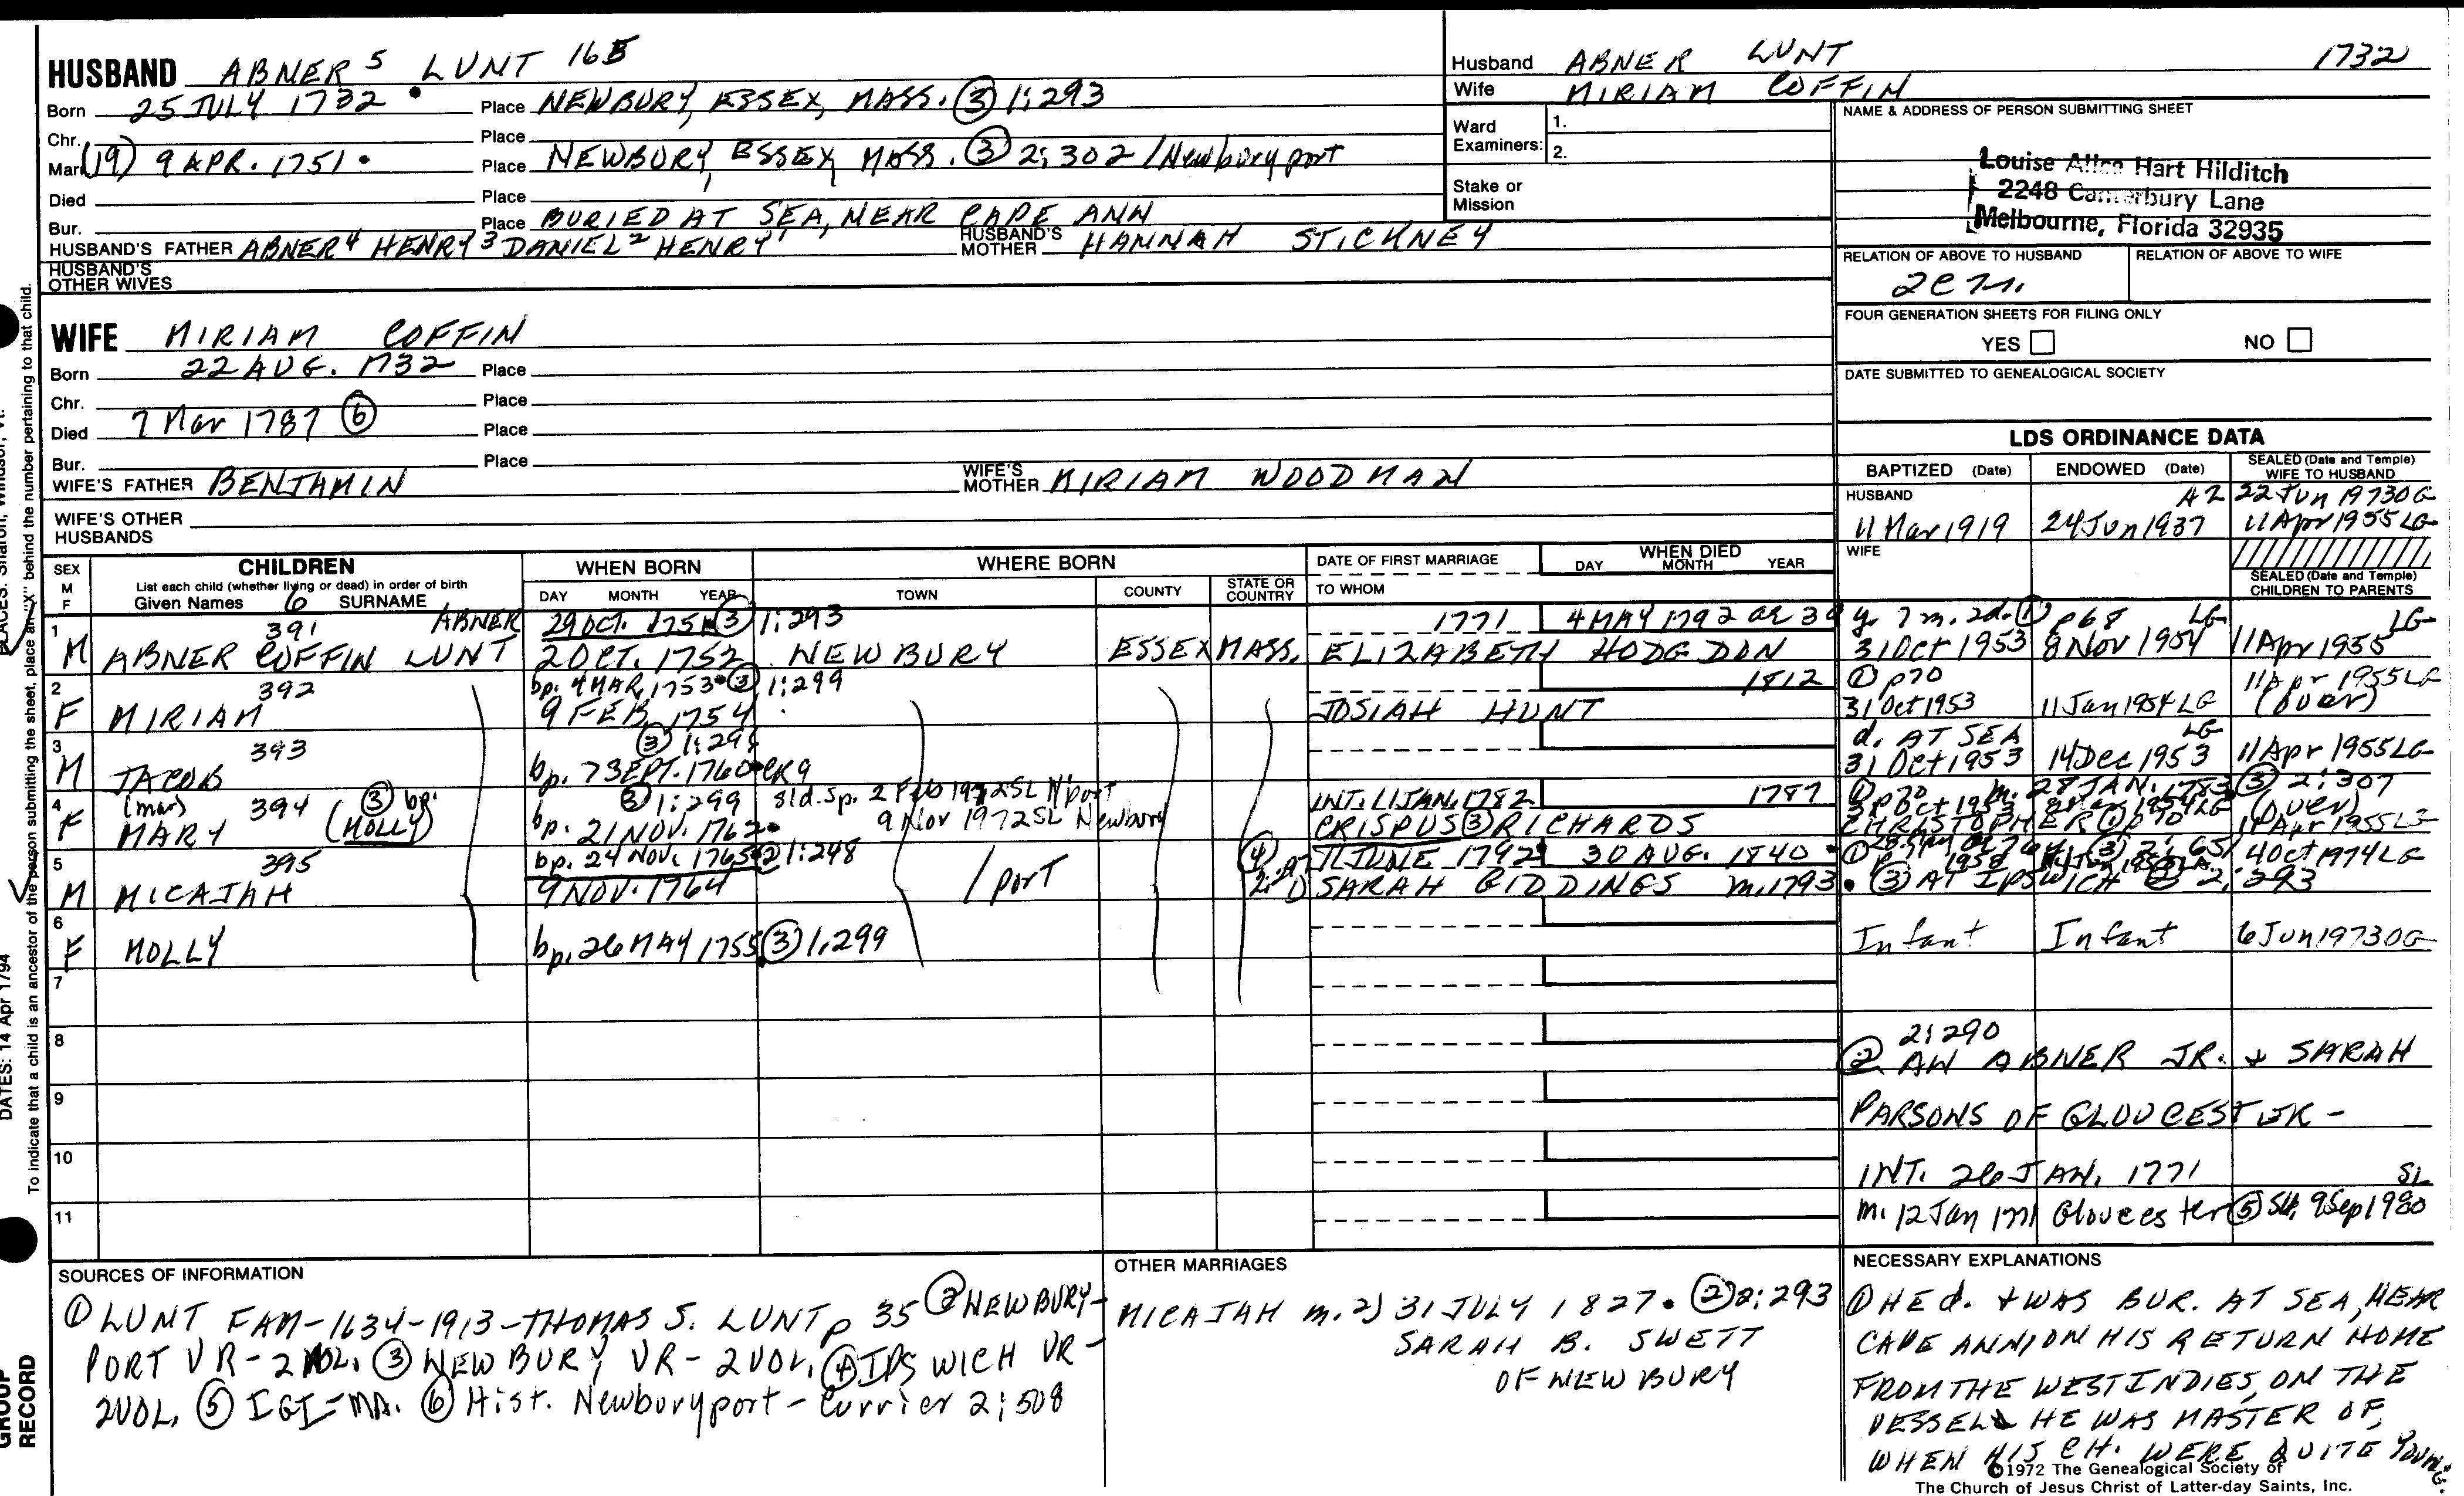 HUSBAND ABNER 5 LUNT 16B
Born 25 JULY 1732 Place NEWBURY, ESSEX, MASS. ③ 1:293
Chr. Place
Mar. (19) 9 APR. 1751 Place NEWBURY, ESSEX, MASS. ③ 2:302 /Newburyport
Died Place
Bur. Place BURIED AT SEA, NEAR CAPE ANN
HUSBAND'S FATHER ABNER 4 HENRY 3 DANIEL 2 HENRY 1 HUSBAND'S MOTHER HANNAH STICKNEY
HUSBAND'S OTHER WIVES
Husband ABNER LUNT 1732
Wife MIRIAM COFFIN
Ward Examiners: 1.
2.
Stake or Mission
NAME & ADDRESS OF PERSON SUBMITTING SHEET
Louise Allen Hart Hilditch
2248 Canterbury Lane
Melbourne, Florida 32935
RELATION OF ABOVE TO HUSBAND RELATION OF ABOVE TO WIFE
FOUR GENERATION SHEETS FOR FILING ONLY
YES NO
DATE SUBMITTED TO GENEALOGICAL SOCIETY
WIFE MIRIAM COFFIN
Born 22 AUG. 1732 Place
Chr. Place
Died 7 Mar 1787 ⑥ Place
Bur. Place
WIFE'S FATHER BENJAMIN WIFE'S MOTHER MIRIAM WOODMAN
WIFE'S OTHER HUSBANDS
LDS ORDINANCE DATA
BAPTIZED (Date) ENDOWED (Date) SEALED (Date and Temple) WIFE TO HUSBAND
HUSBAND AZ 22 Jun 1973 OG
11 Mar 1919 24 Jun 1937 11 Apr 1955 LG
WIFE
SEALED (Date and Temple) CHILDREN TO PARENTS
SEX M F
CHILDREN
List each child (whether living or dead) in order of birth
Given Names 6 SURNAME
WHEN BORN
DAY MONTH YEAR
WHERE BORN
TOWN COUNTY STATE OR COUNTRY
DATE OF FIRST MARRIAGE
TO WHOM
WHEN DIED
DAY MONTH YEAR
1 391 ABNER 29 OCT. 1751 ③ 1:293 1771 4 MAY 1792 ae 39 y. 7 m. 2d. ① p68 LG LG
M ABNER COFFIN LUNT 2 OCT. 1752 NEWBURY ESSEX MASS. ELIZABETH HODGDON 31 Oct 1953 8 Nov 1954 11 Apr 1955
2 392 bp. 4 MAR. 1753 ③ 1:299 1812 ① p70 11 Apr 1955 LG
F MIRIAM 9 FEB. 1754 JOSIAH HUNT 31 Oct 1953 11 Jan 1954 LG (over)
3 393 ③ d. AT SEA LG
M JACOB bp. 7 SEPT. 1760 CR9 31 Oct 1953 14 Dec 1953 11 Apr 1955 LG
4 (mar) 394 ③ bp. ③ 1:299 sld. sp. 2 Feb 1972 SL N'port INT. 11 JAN. 1782 1787 ① p70 m. 28 JAN. 1783 ③ 2:307
F MARY (MOLLY) bp. 21 NOV. 1762 9 Nov 1972 SL Newbury CRISPUS ③ RICHARDS CHRISTOPHER ① p70 (over) 11 Apr 1955 LG
5 395 bp. 24 NOV. 1765 ② 1:248 ④ 11 JUNE 1792 30 AUG. 1840 4 Oct 1974 LG
M MICAJAH 9 NOV. 1764 /port SARAH GIDDINGS m. 1793 ③ AT IPSWICH ② 2:293
6
F MOLLY bp. 26 MAY 1755 ③ 1:299 Infant Infant 6 Jun 1973 OG
7
8 2:290
② AN ABNER JR. + SARAH
9
PARSONS OF GLOUCESTER -
10
INT. 26 JAN. 1771 SL
11 m. 12 Jan 1771 Gloucester ⑤ 9 Sep 1980
SOURCES OF INFORMATION
① LUNT FAM-1634-1913-THOMAS S. LUNT p 35 ② NEWBURY-
PORT VR-2 VOL. ③ NEWBURY VR-2 VOL. ④ IPSWICH VR-
2 VOL. ⑤ IGI-MA. ⑥ Hist. Newburyport-Currier 2:508
OTHER MARRIAGES
MICAJAH m. 2) 31 JULY 1827. ② 2:293
SARAH B. SWETT
OF NEWBURY
NECESSARY EXPLANATIONS
① HE d. + WAS BUR. AT SEA, NEAR
CAPE ANN, ON HIS RETURN HOME
FROM THE WEST INDIES, ON THE
VESSEL HE WAS MASTER OF,
WHEN HIS CH. WERE QUITE YOUNG.
©1972 The Genealogical Society of
The Church of Jesus Christ of Latter-day Saints, Inc.
To indicate that a child is an ancestor of the person submitting the sheet, place an "X" behind the number pertaining to that child.
PLACES: Sharon, Windsor, Vt.
DATES: 14 Apr 1794
GROUP
RECORD